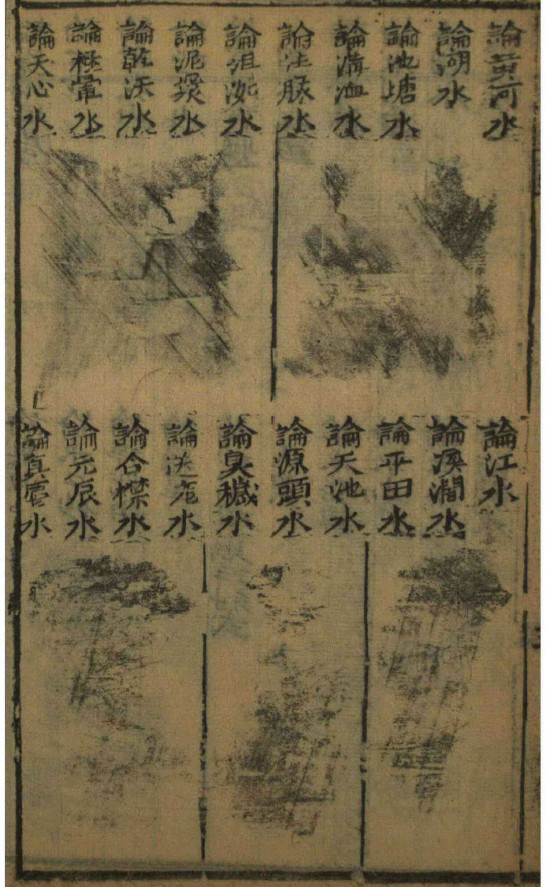 論黃河水
論湖水
論池塘水
論溝洫水
論注脉水
論沮洳水
論泥漿水
論乾水
論極暈水
論天心水
論江水
論溪澗水
論平田水
論天池水
論源頭水
論臭穢水
論送龍水
論合襟水
論元辰水
論真應水